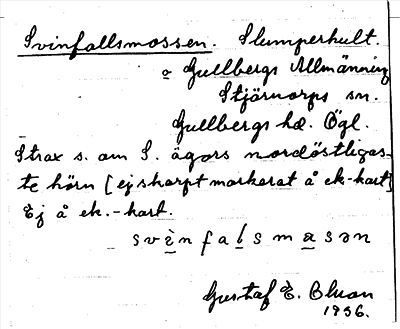 Svinfallsmossen. Slumperhult.
o Gullbergs Allmänning
Stjärnorps sn.
Gullbergs hd. Ögl.
Strax s. om S. ägors nordöstligas-
te hörn [ej skarpt markerat å ek-kart]
Ej å ek.-kart.
svinfalsmasən
Gustaf E. Bluon
1936.